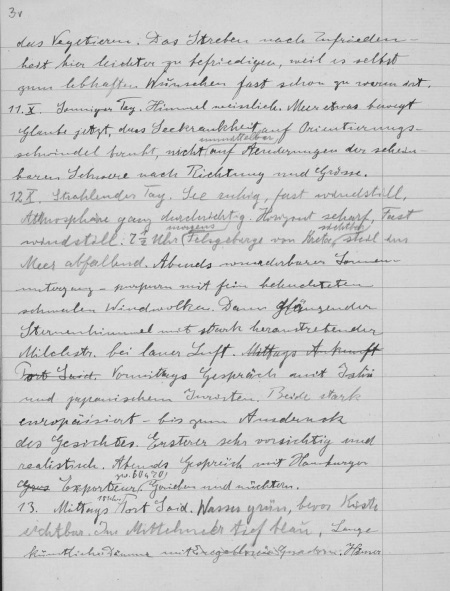 3v
das Vegetieren. Das Streben nach Zufrieden-
heit hier leichter zu befriedigen, weil es selbst
zum lebhaften Wünschen fast schon zu warm ist.
11. X. Sonniger Tag. Himmel weisslich. Meer etwas bewegt
Glaube jetzt, dass Seekrankheit auf Orientierungs-
schwindel beruht, nicht unmittelbar auf Aenderungen der schein
baren Schwere nach Richtung und Grösse.
12 X. Strahlender Tag. See ruhig, fast windstill,
Atmosphäre ganz durchsichtig. Horizont scharf, Fast
windstill. 7½ Uhr morgens Felsgebirge von Kreta sichtbar steil ins
Meer abfallend. Abends wunderbarer Sonnen-
untergang – purpurn mit fein beleuchteten
schmalen Windwolken. Dann glänzender
Sternenhimmel mit stark heraustretender
Milchstr. bei lauer Luft. Mittags Ankunft
Port Said. Vormittags Gespräch mit
und japanischem Juristen. Beide stark
europäisiert – bis zum Ausdruck
des Gesichtes. Ersterer sehr vorsichtig und
realistisch. Abends Gespräch mit Hamburger
Exporteur, und nüchtern.
13. Mittags Port Said. Wasser grün, bevor Küste
sichtbar. Im Mittelmeer tief blau, Lange
künstliche Dämme mit